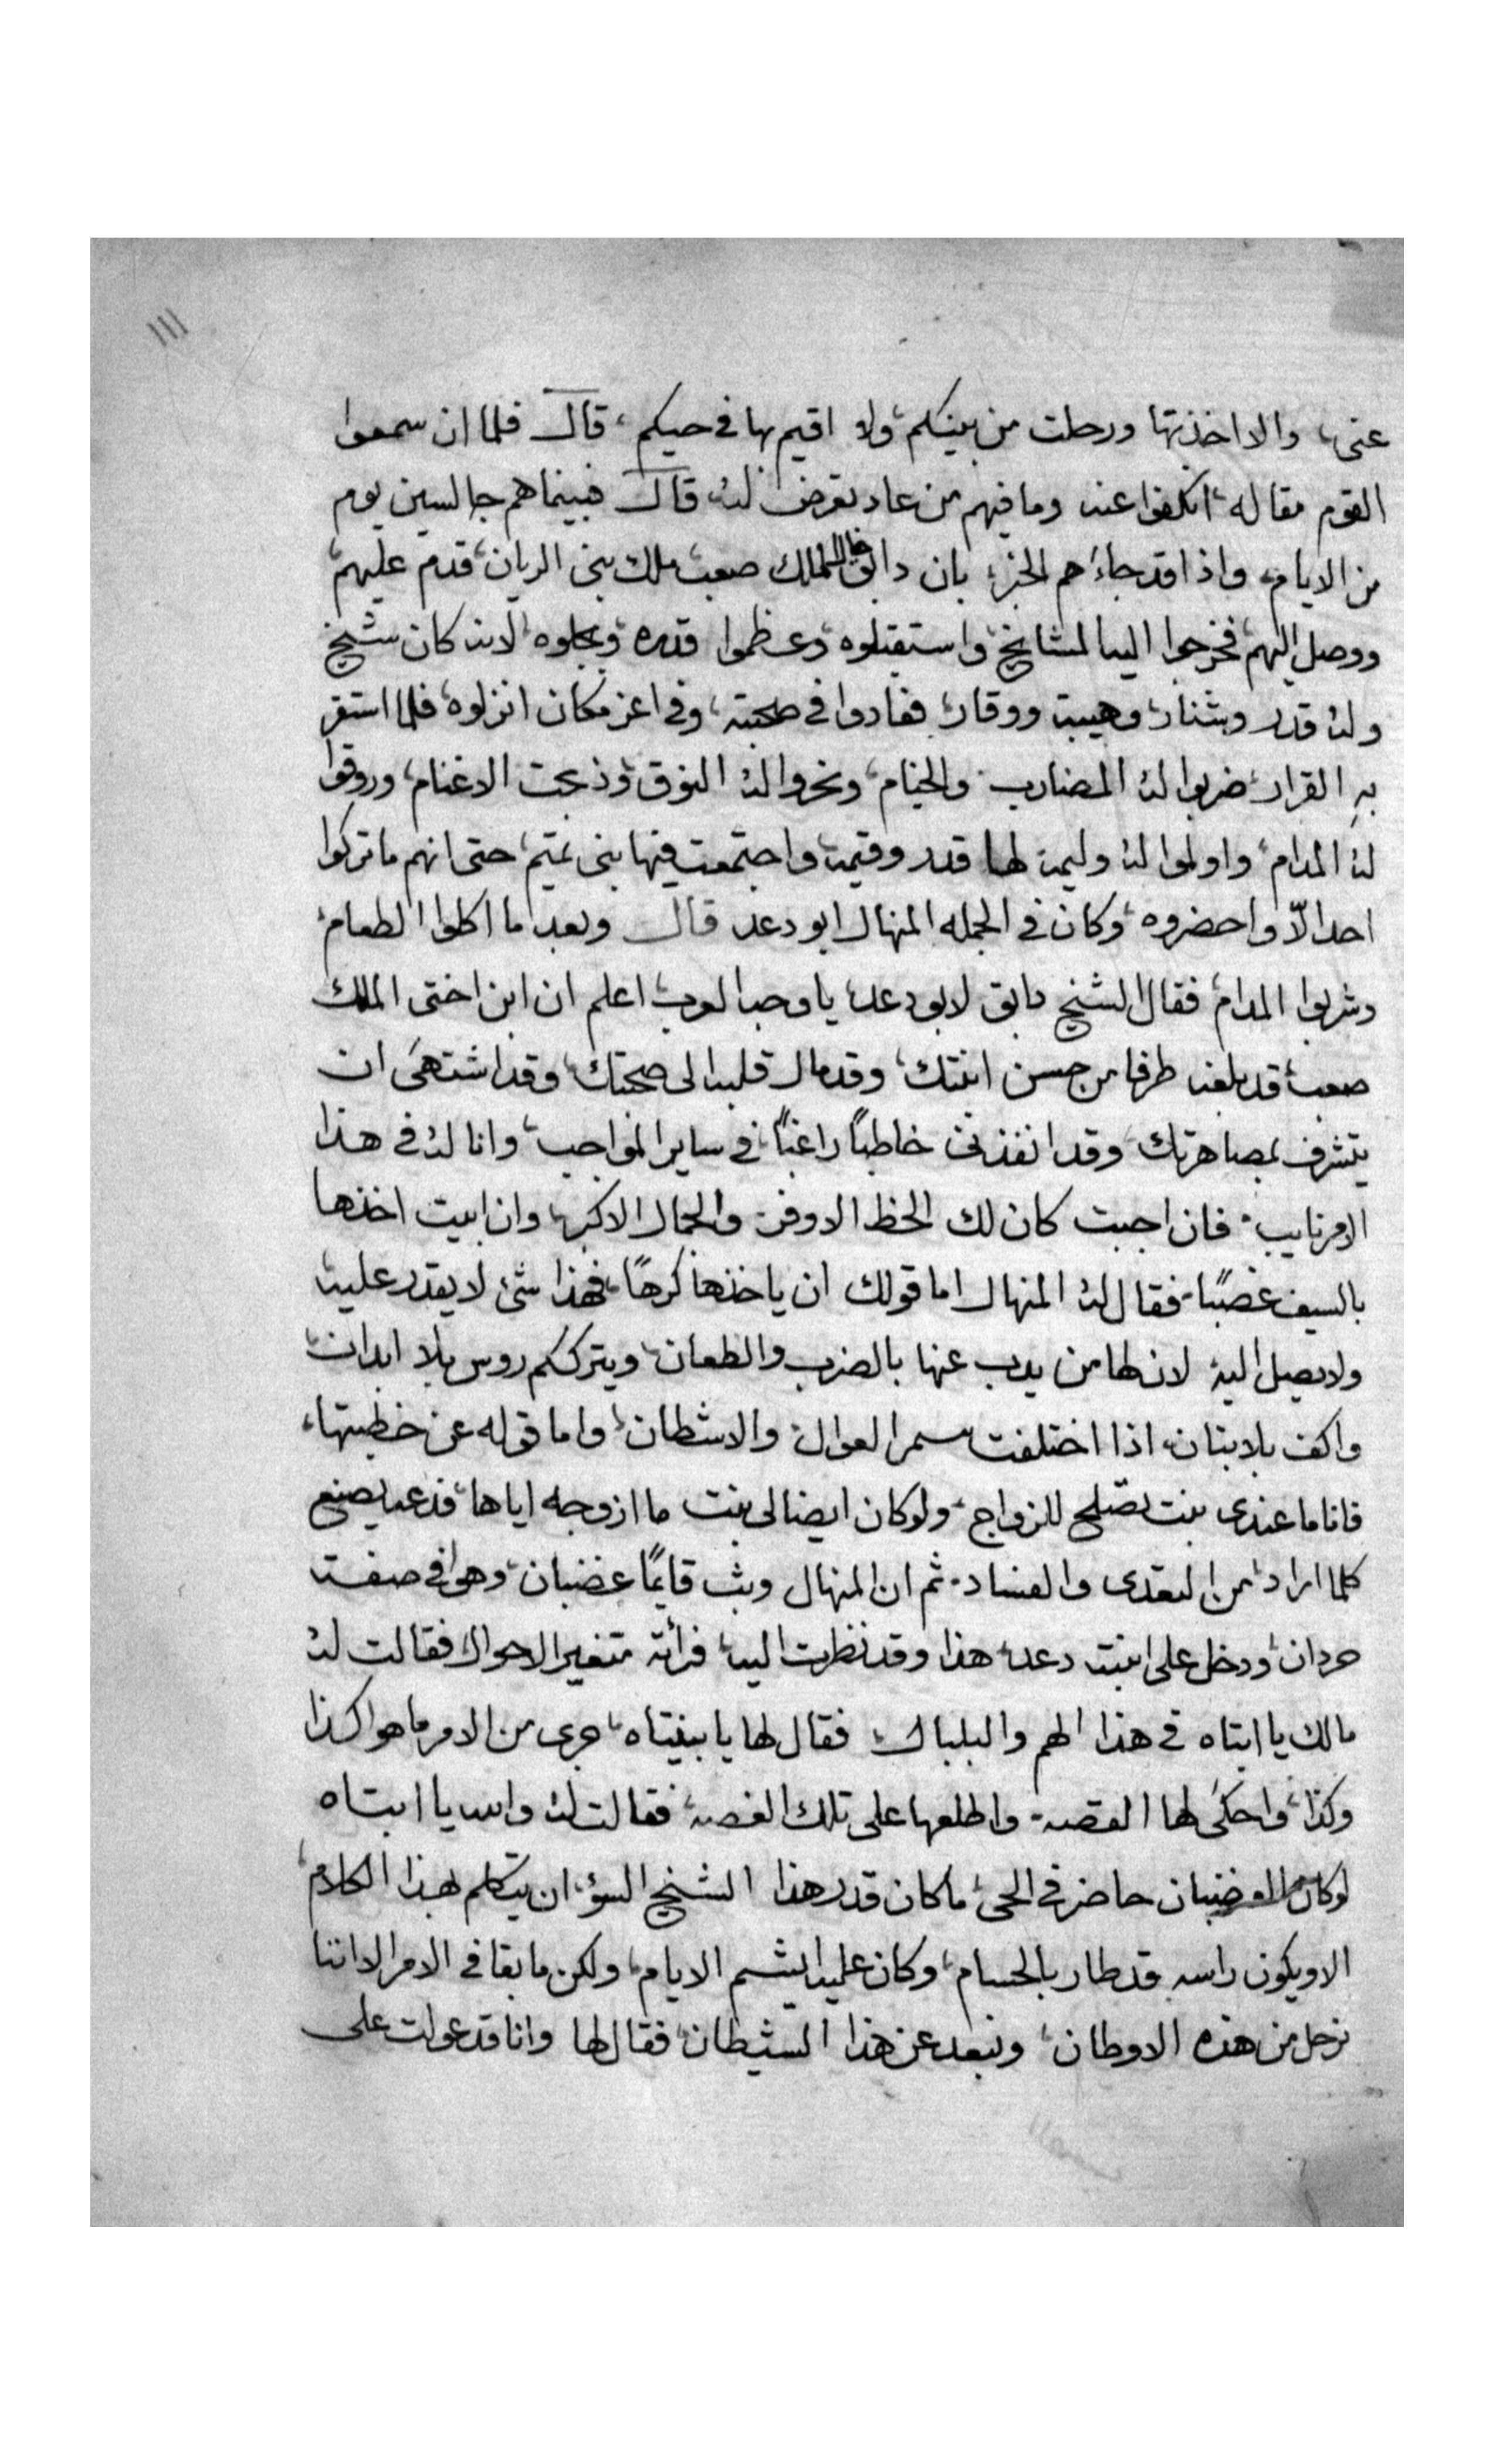 ١١١
عنى، والا اخذتها ورحلت من بينكم، ولا اقيم بها في حيكم، قال فلما ان سمعوا
القوم مقاله، انكفوا عنه وما فيهم من عاد تعرض له، قال فبينما هم جالسين يوم
من الايام، واذا قد جاءهم الخبر، بان دابق خال الملك صعب ملك بنى الريان، قدم عليهم
ووصل اليهم، فخرجوا اليه المشايخ، واستقبلوه، وعظموا قدره وبجلوه، لانه كان شيخ
وله قدر وشنار، وهيبة ووقار، فعادوا في صحبته، وفي اعز مكان انزلوه، فلما استقر
به القرار، ضربوا له المضارب والخيام، ونحروا له النوق، وذبحت الاغنام، وروقوا
له المدام، واولموا له وليمة لها قدر وقيمة، واجتمعت فيها بنى تميم، حتى انهم ما تركوا
احدا الّا واحضروه، وكان في الجمله المنهال ابو دعد قال وبعد ما اكلوا الطعام،
وشربوا المدام، فقال الشيخ دابق لابو دعد، يا وجه العرب، اعلم ان ابن اختى الملك
صعب، قد بلغه طرفا من حسن ابنتك، وقد مال قلبه الى صحبتك، وقد اشتهى ان
يتشرف بمصاهرتك، وقد انفذنى خاطبًا راغبًا، في ساير المواجب، وانا له في هذا
الامر نايب، فان اجبت كان لك الحظ الاوفر، والجمال الاكبر، وان ابيت اخذها
بالسيف غصبًا، فقال له المنهال اما قولك ان ياخذها كرهًا، فهذا شئ لا يقدر عليه
ولا يصل اليه، لان لها من يدب عنها بالضرب والطعان، ويترككم روس بلا ابدان،
واكف بلا بنان، اذا اختلفت سمر العوال، والاشطان، واما قوله عن خطبتها،
فانا ما عندى بنت تصلح للزواج، ولو كان ايضا لى بنت ما ازوجه اياها، فدعه يصنع
كلما اراد، من التعدى والفساد، ثم ان المنهال وثب قايمًا غضبان، وهو في صفة
حردان، ودخل على ابنته دعد، هذا وقد نظرت اليه، فرأته متغير الاحوال، فقالت له
مالك يا ابتاه في هذا الهم والبلبال، فقال لها يا بنيتاه، جرى من الامر ما هو اكذا
وكذا، واحكى لها القصة، واطلعها على تلك الغصه، فقالت له والله يا ابتاه
لو كان الغضبان حاضر في الحى، ما كان قدر هذا الشيخ السؤ، ان يتكلم بهذا الكلام،
الا ويكون راسه قد طار بالحسام، وكان عليه ايشم الايام، ولكن ما بقا في الامر الا اننا
نرحل من هذه الاوطان، ونبعد عن هذا الشيطان، فقال لها وانا قد عولت على